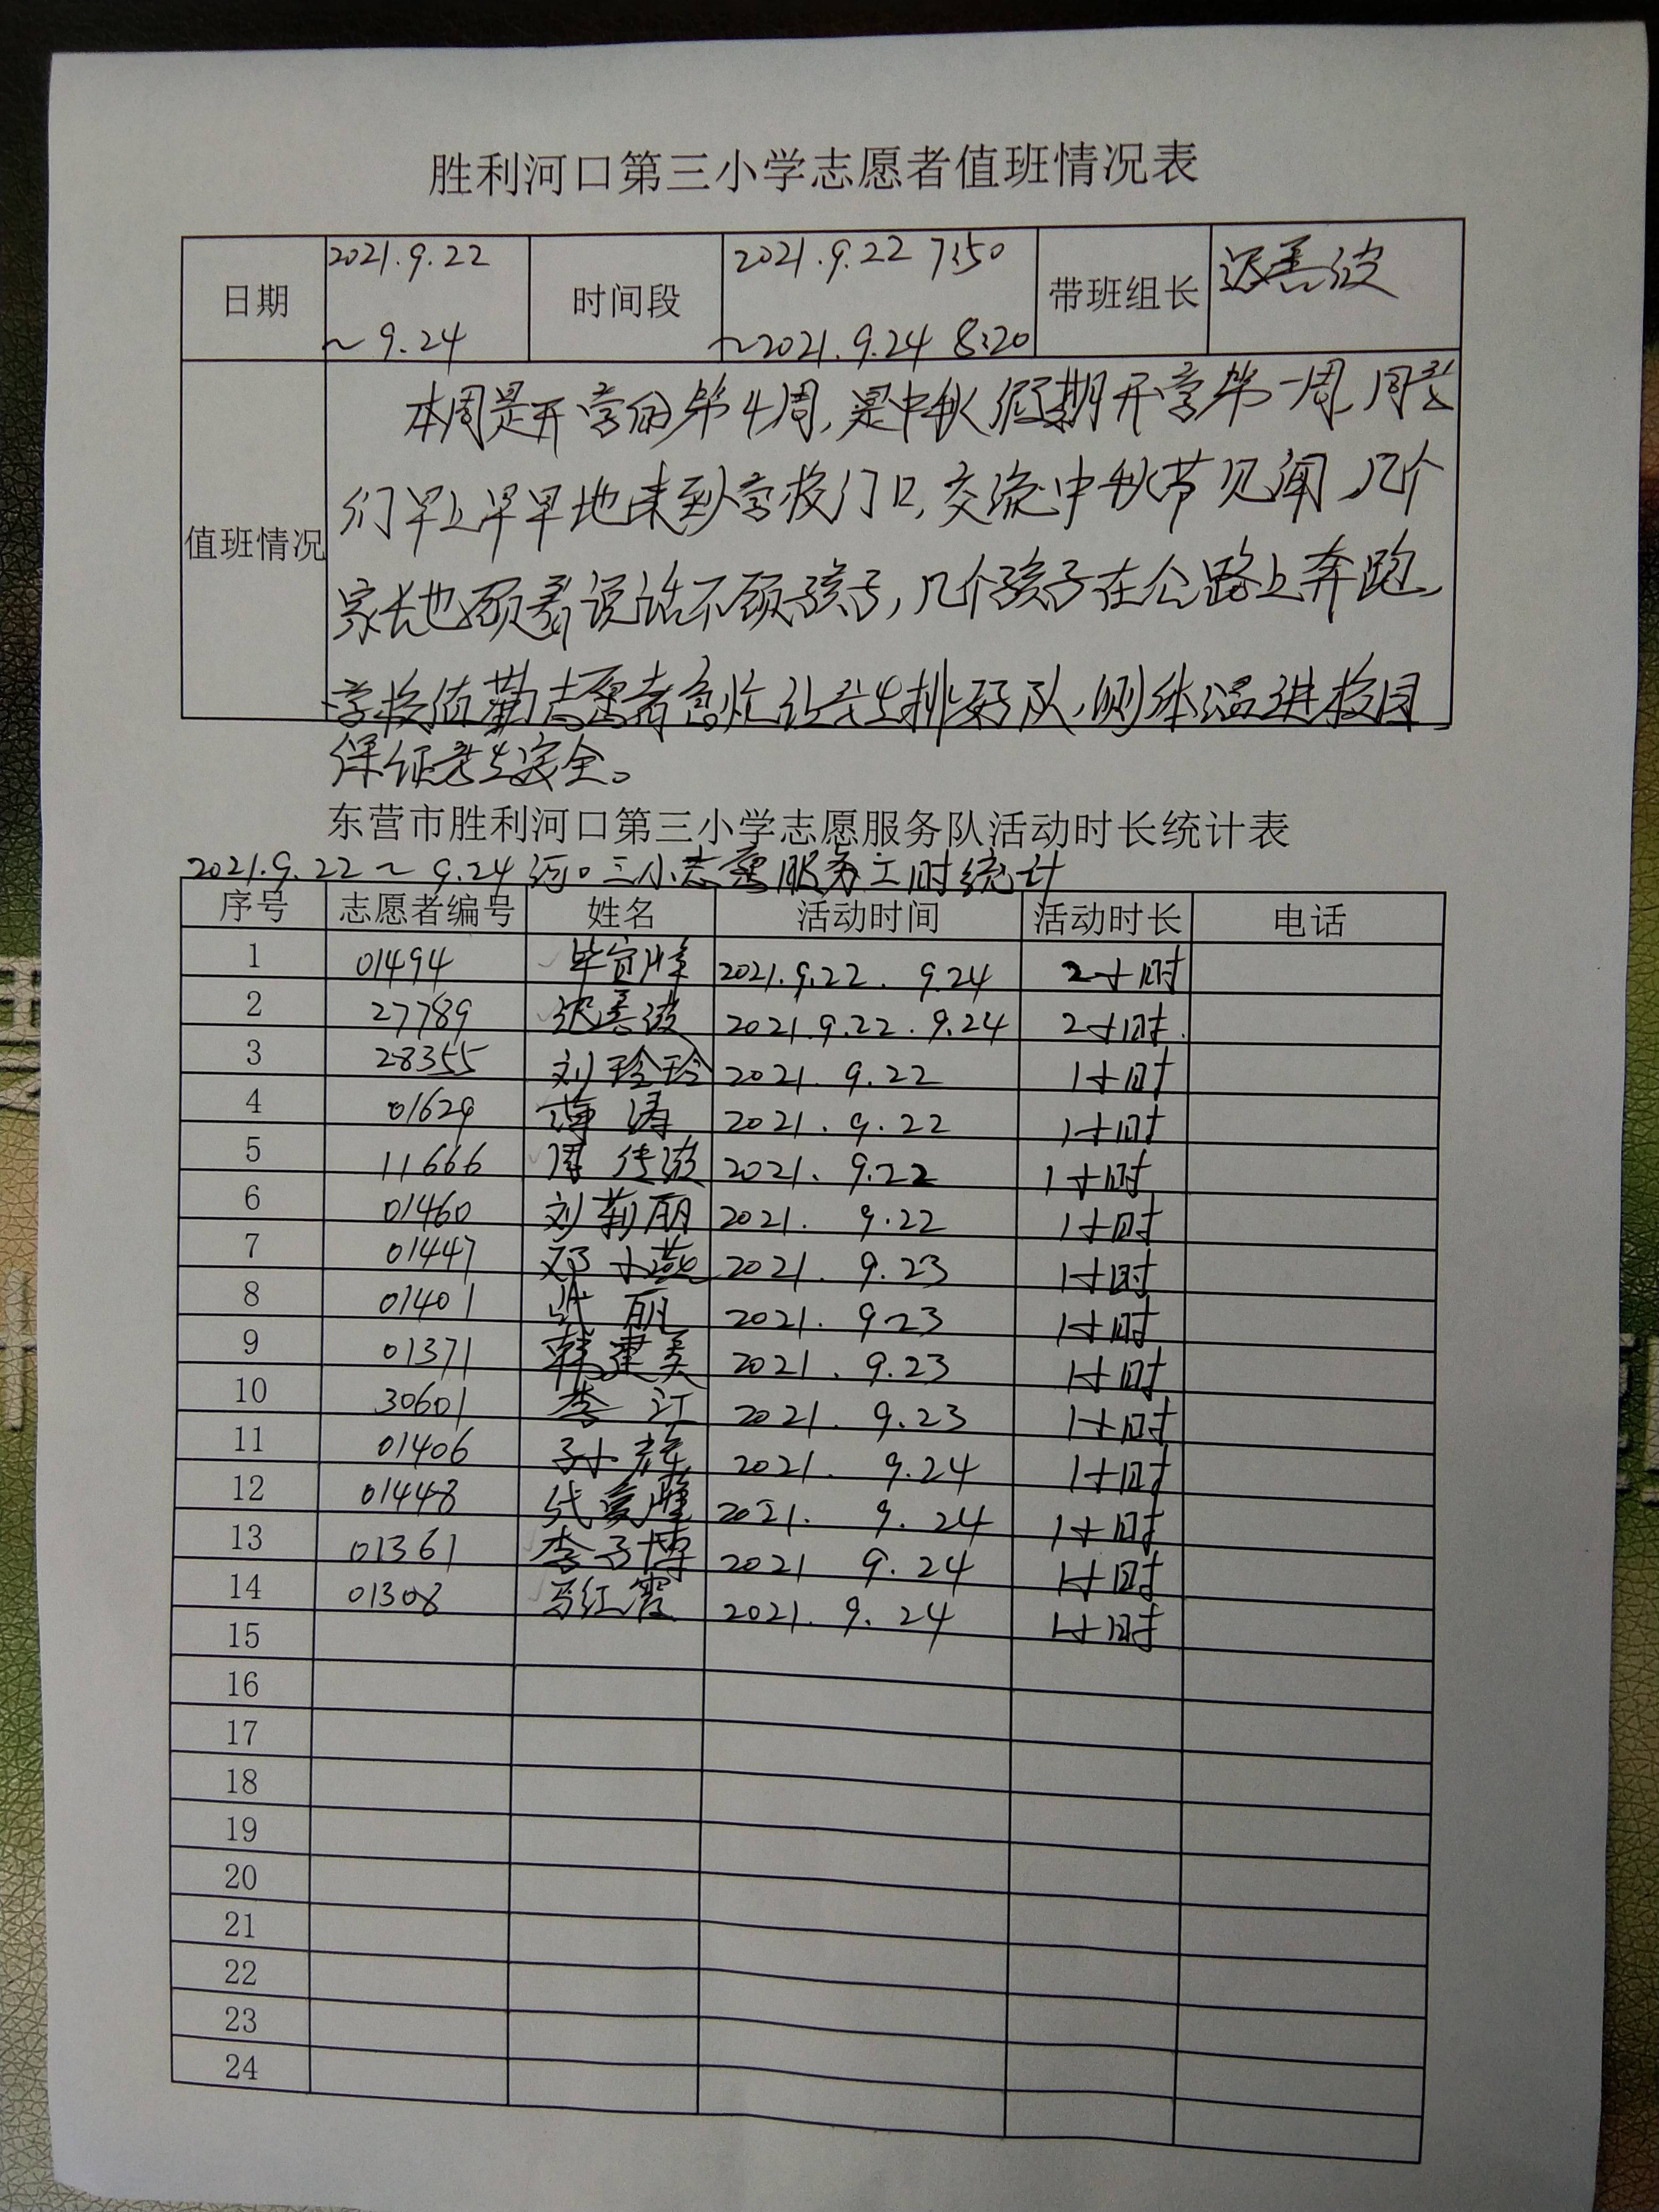 胜利河口第三小学志愿者值班情况表
日期 2021.9.22 ~9.24 时间段 2021.9.22 7:50 ~2021.9.24 8:20 带班组长 迟善波
值班情况
本周是开学的第4周,是中秋假期开学第一周,同学
们早上早早地来到学校门口,交流中秋节见闻,几个
家长也顾着说话不顾孩子,几个孩子在公路上奔跑,
学校值勤志愿者急忙让学生排好队,测体温进校园,
保证学生安全。
东营市胜利河口第三小学志愿服务队活动时长统计表
2021.9.22~9.24河口三小志愿服务工时统计
序号 志愿者编号 姓名 活动时间 活动时长 电话
1 01494 毕宜峰 2021.9.22. 9.24 2小时
2 27789 迟善波 2021.9.22.9.24 2小时.
3 28355 刘玲玲 2021.9.22 1小时
4 01629 薄涛 2021.9.22 1小时
5 11666 周传波 2021.9.22 1小时
6 01460 刘莉丽 2021. 9.22 1小时
7 01447 邓小燕 2021. 9.23 1小时
8 01401 武丽 2021. 9.23 1小时
9 01371 韩建美 2021. 9.23 1小时
10 30601 李江 2021. 9.23 1小时
11 01406 孙小辉 2021. 9.24 1小时
12 01448 2021. 9.24 1小时
13 01361 李子博 2021 9.24 1小时
14 01308 马红霞 2021.9.24 1小时
15
16
17
18
19
20
21
22
23
24